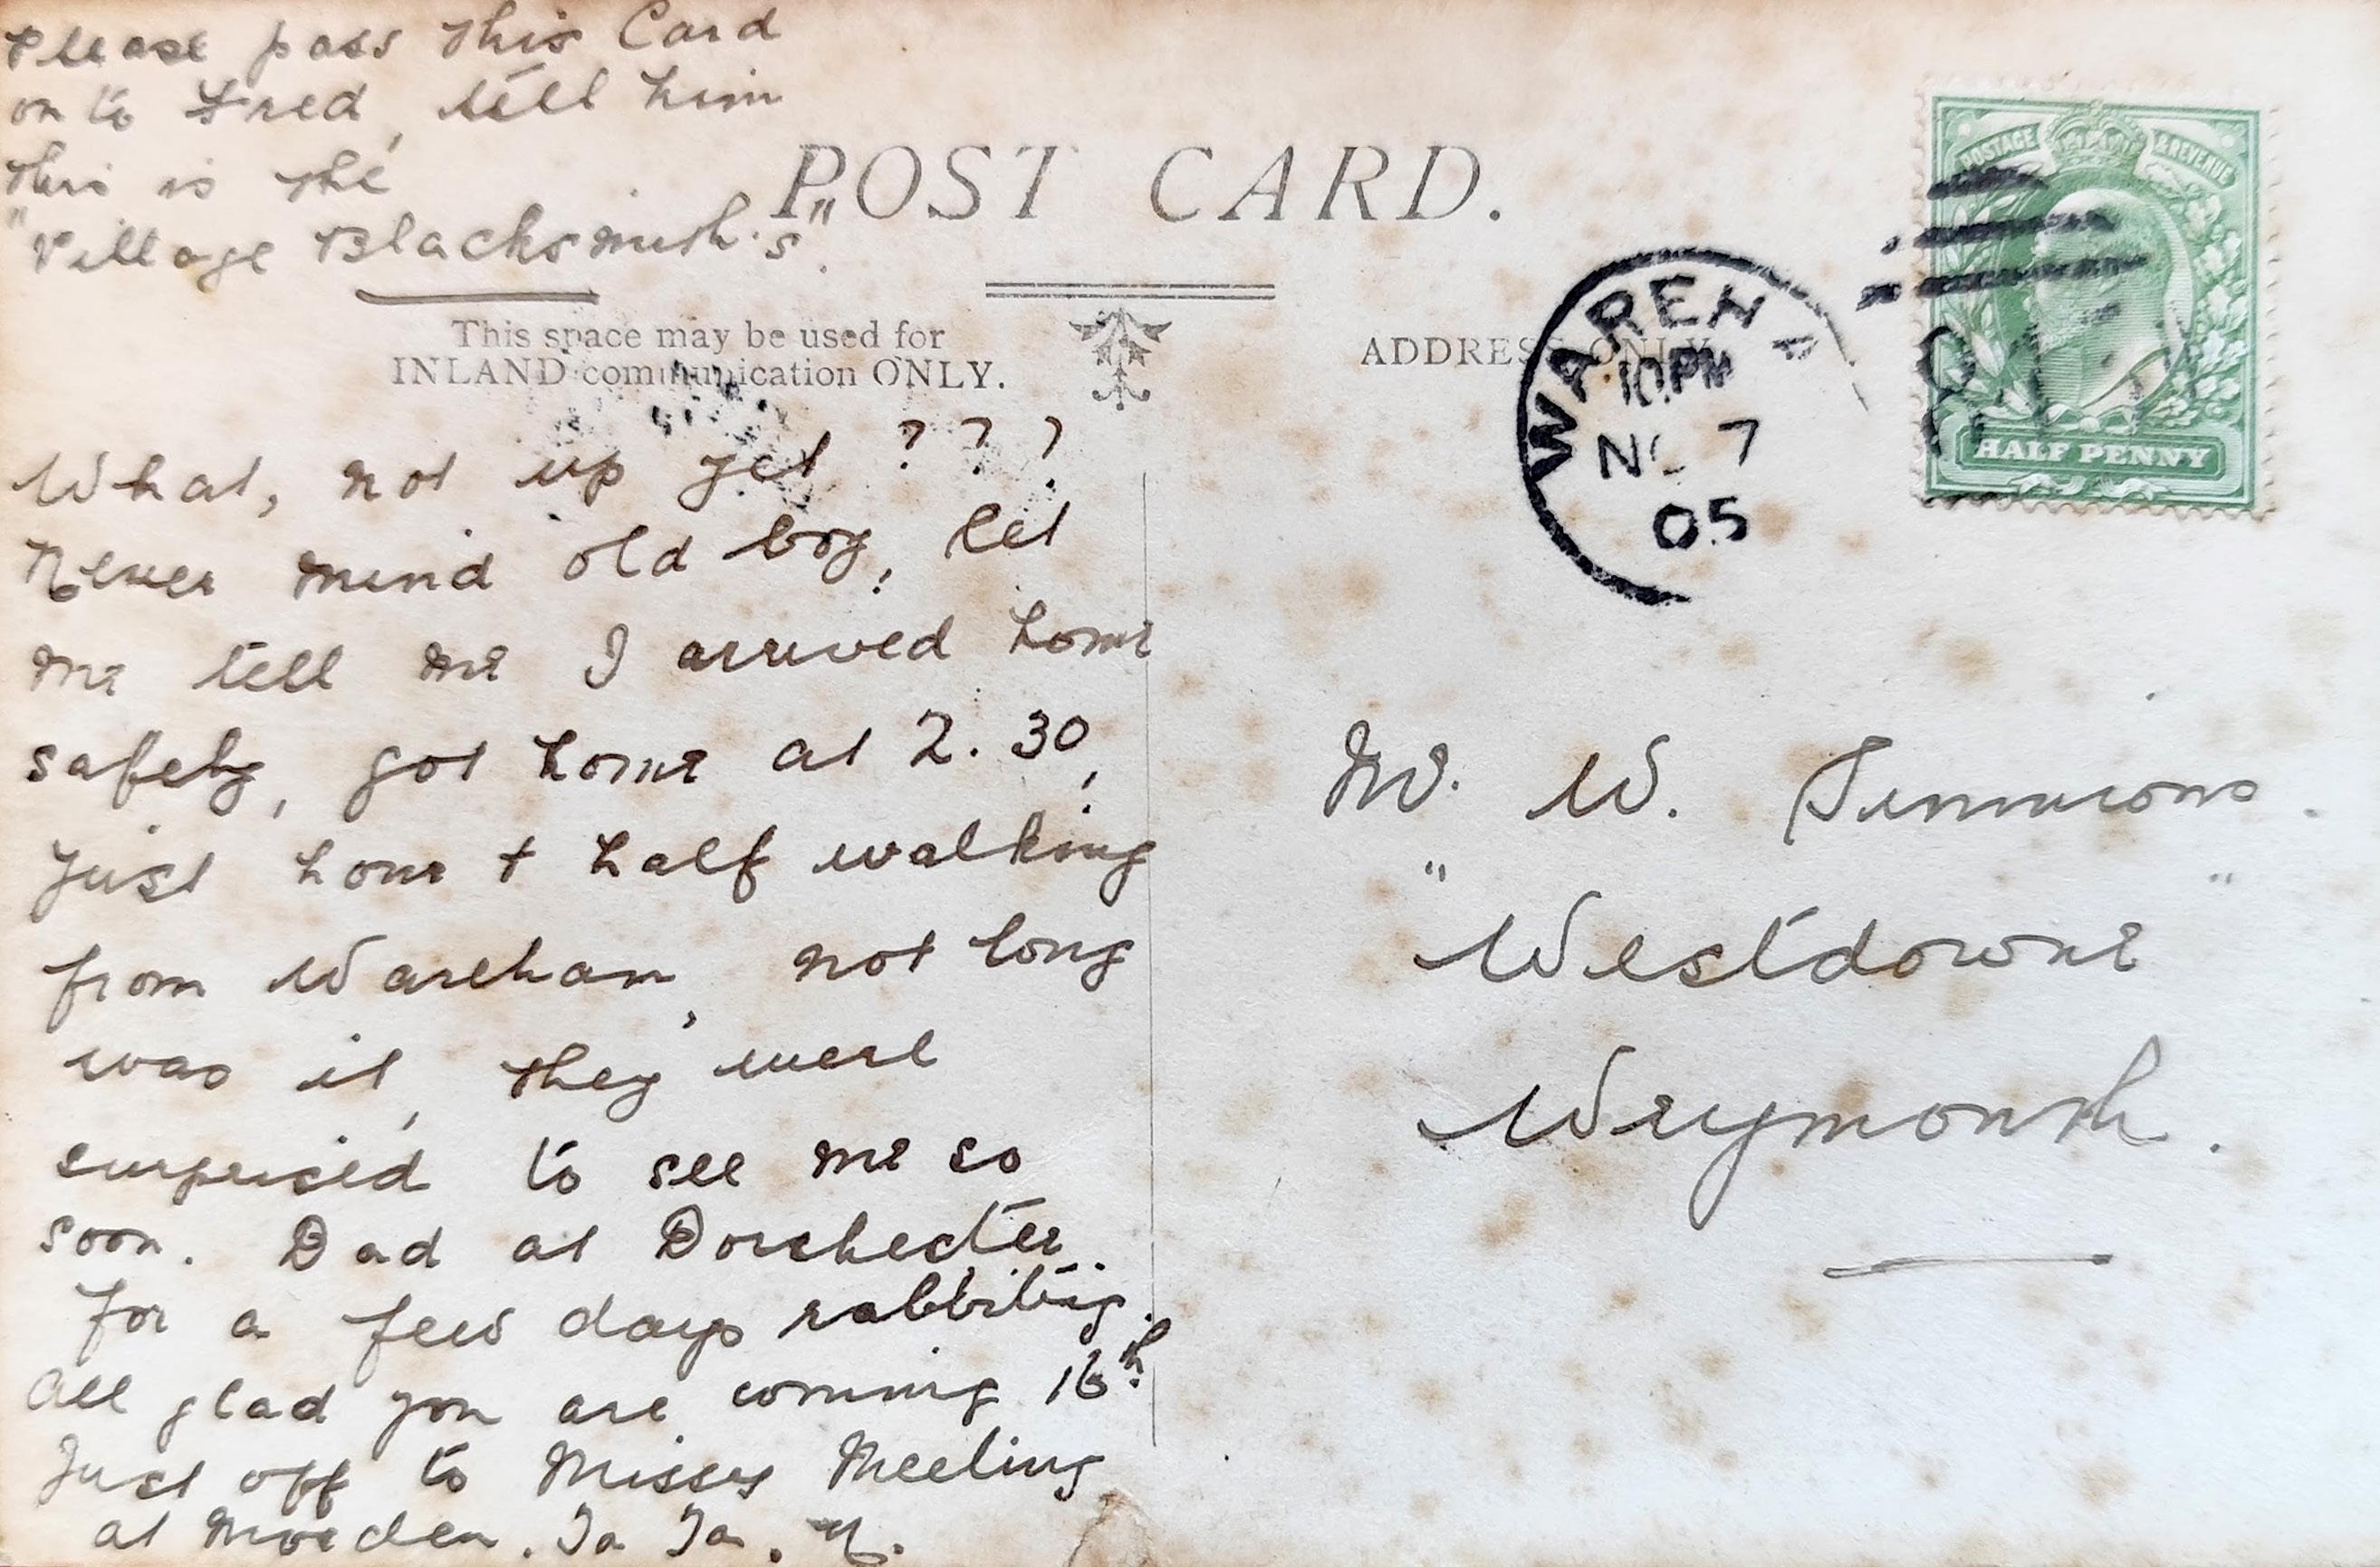 Please pass this Card
on to Fred, tell him
this is the
"Village Blacksmith's".
POST CARD.
This space may be used for
INLAND communication ONLY.
ADDRESS ONLY
WAREHA
10.PM
NO 7
05
POSTAGE & REVENUE
HALF PENNY
What, not up yet ? ? ?
Never mind old boy, let
me tell me I arrived home
safely, got home at 2.30,
Just hour + half walking
from Wareham, not long
was it, they were
surprised to see me so
soon. Dad at Dorchester
for a few days rabbiting.
All glad you are coming 16th
Just off to Missy Meeling
at Morden. Ta Ta.
Mr. W. Simmons.
"Westdowne"
Weymouth.